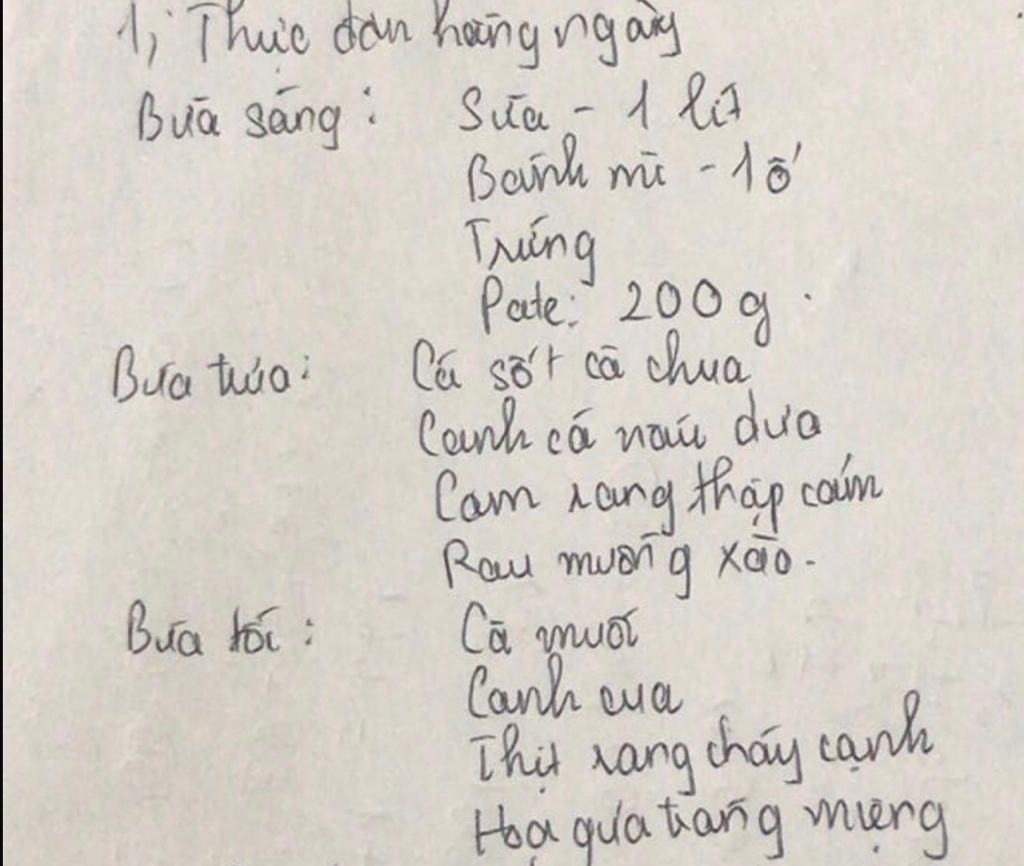 1, Thực đơn hàng ngày
Bữa sáng: Sữa - 1 lít
Bánh mì - 1 ổ
Trứng
Pate: 200g.
Bữa trưa: Cá sốt cà chua
Canh cá nấu dưa
Cơm rang thập cẩm
Rau muống xào.
Bữa tối: Cà muối
Canh cua
Thịt rang cháy cạnh
Hoa quả tráng miệng